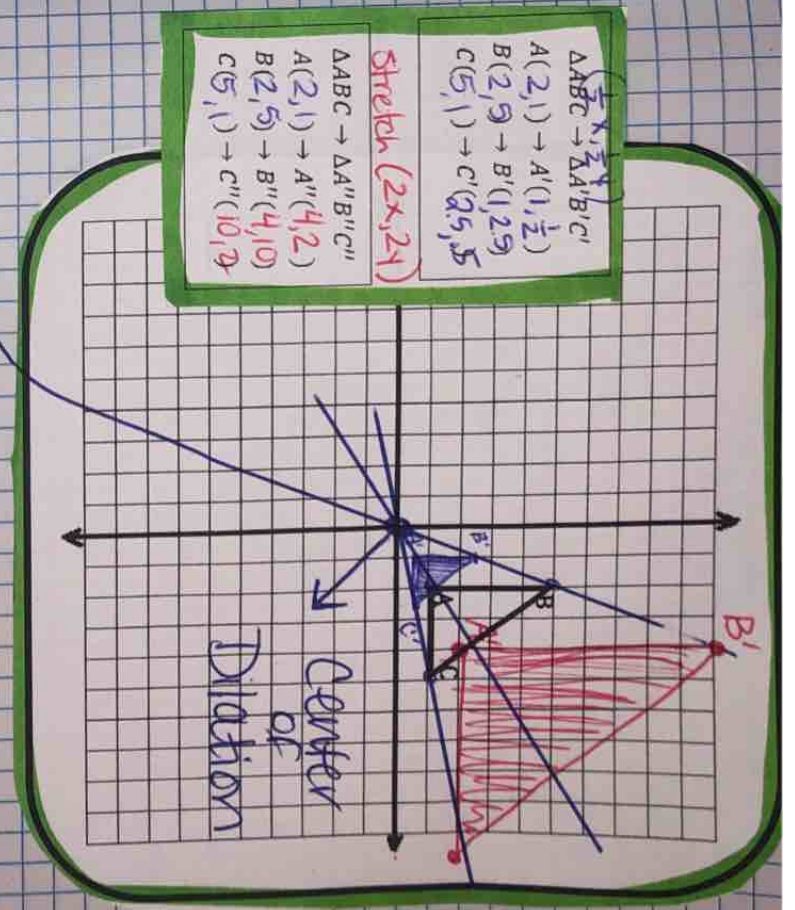 (½x, ½y)
ΔABC → ΔA'B'C'
A(2,1) → A'(1,½)
B(2,5) → B'(1,2.5)
C(5,1) → C'(2.5,.5
Stretch (2x,2y)
ΔABC → ΔA"B"C"
A(2,1) → A"(4,2)
B(2,5) → B"(4,10)
C(5,1) → C"(10,2)
B'
B'
B
A'
A
A"
C'
C
Center
of
Dilation